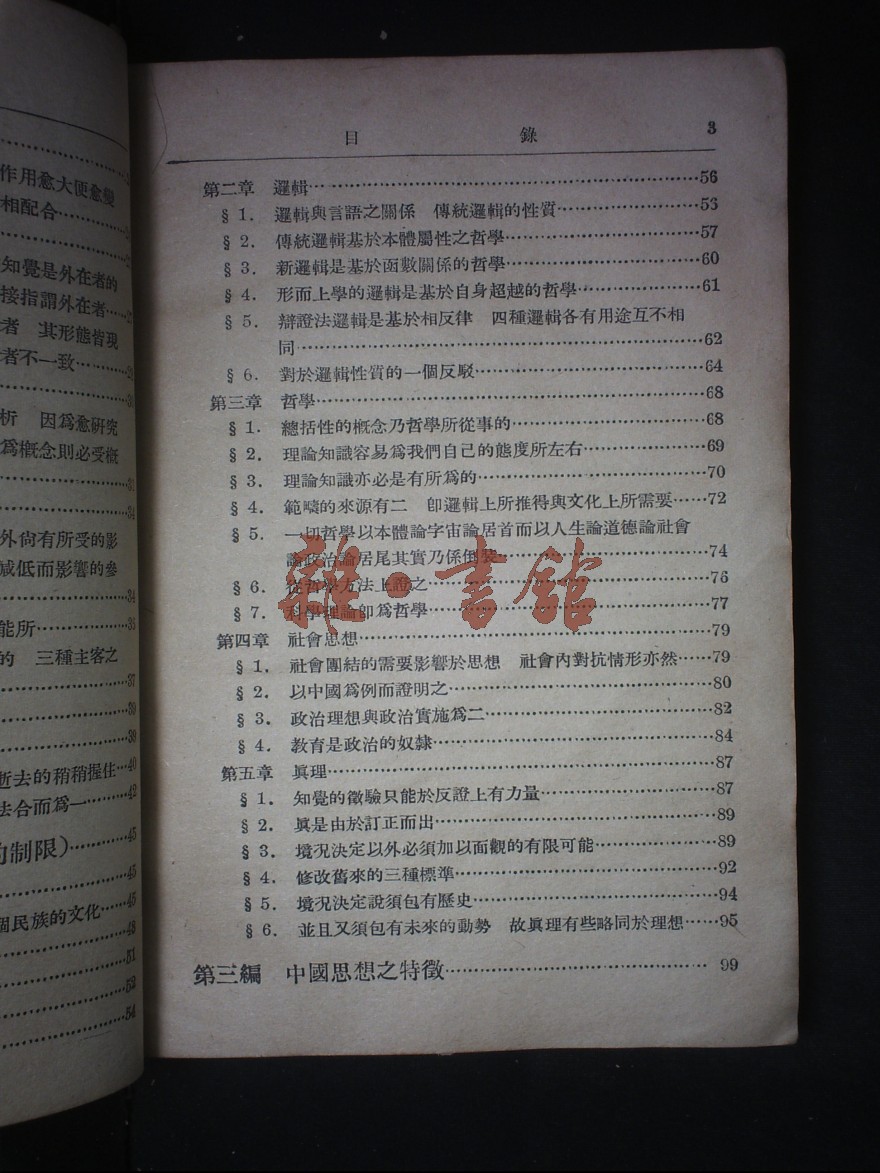 作用愈大便愈變
相配合
知覺是外在者的
接指謂外在者
者 其形態皆現
者不一致
析 因爲愈研究
爲概念則必受概
33
34
外尙有所受的影
減低而影響的參
34
能所 35
的 三種主客之
37
39
39
逝去的稍稍握住 40
法合而爲一 42
的制限) 45
45
個民族的文化 45
48
51
53
54
目 錄 3
第二章 邏輯 56
§ 1. 邏輯與言語之關係 傳統邏輯的性質 53
§ 2. 傳統邏輯基於本體屬性之哲學 57
§ 3. 新邏輯是基於函數關係的哲學 60
§ 4. 形而上學的邏輯是基於自身超越的哲學 61
§ 5. 辯證法邏輯是基於相反律 四種邏輯各有用途互不相
同 62
§ 6. 對於邏輯性質的一個反駁 64
第三章 哲學 68
§ 1. 總括性的概念乃哲學所從事的 68
§ 2. 理論知識容易爲我們自己的態度所左右 69
§ 3. 理論知識亦必是有所爲的 70
§ 4. 範疇的來源有二 卽邏輯上所推得與文化上所需要 72
§ 5. 一切哲學以本體論宇宙論居首而以人生論道德論社會
論政治論居尾其實乃係倒裝 74
§ 6. 從哲學方法上證之 76
§ 7. 科學理論卽爲哲學 77
第四章 社會思想 79
§ 1. 社會團結的需要影響於思想 社會內對抗情形亦然 79
§ 2. 以中國爲例而證明之 80
§ 3. 政治理想與政治實施爲二 82
§ 4. 教育是政治的奴隸 84
第五章 眞理 87
§ 1. 知覺的徵驗只能於反證上有力量 87
§ 2. 眞是由於訂正而出 89
§ 3. 境況決定以外必須加以面觀的有限可能 89
§ 4. 修改舊來的三種標準 92
§ 5. 境況決定說須包有歷史 94
§ 6. 並且又須包有未來的動勢 故眞理有些略同於理想 95
第三編 中國思想之特徵 99
雜·書館